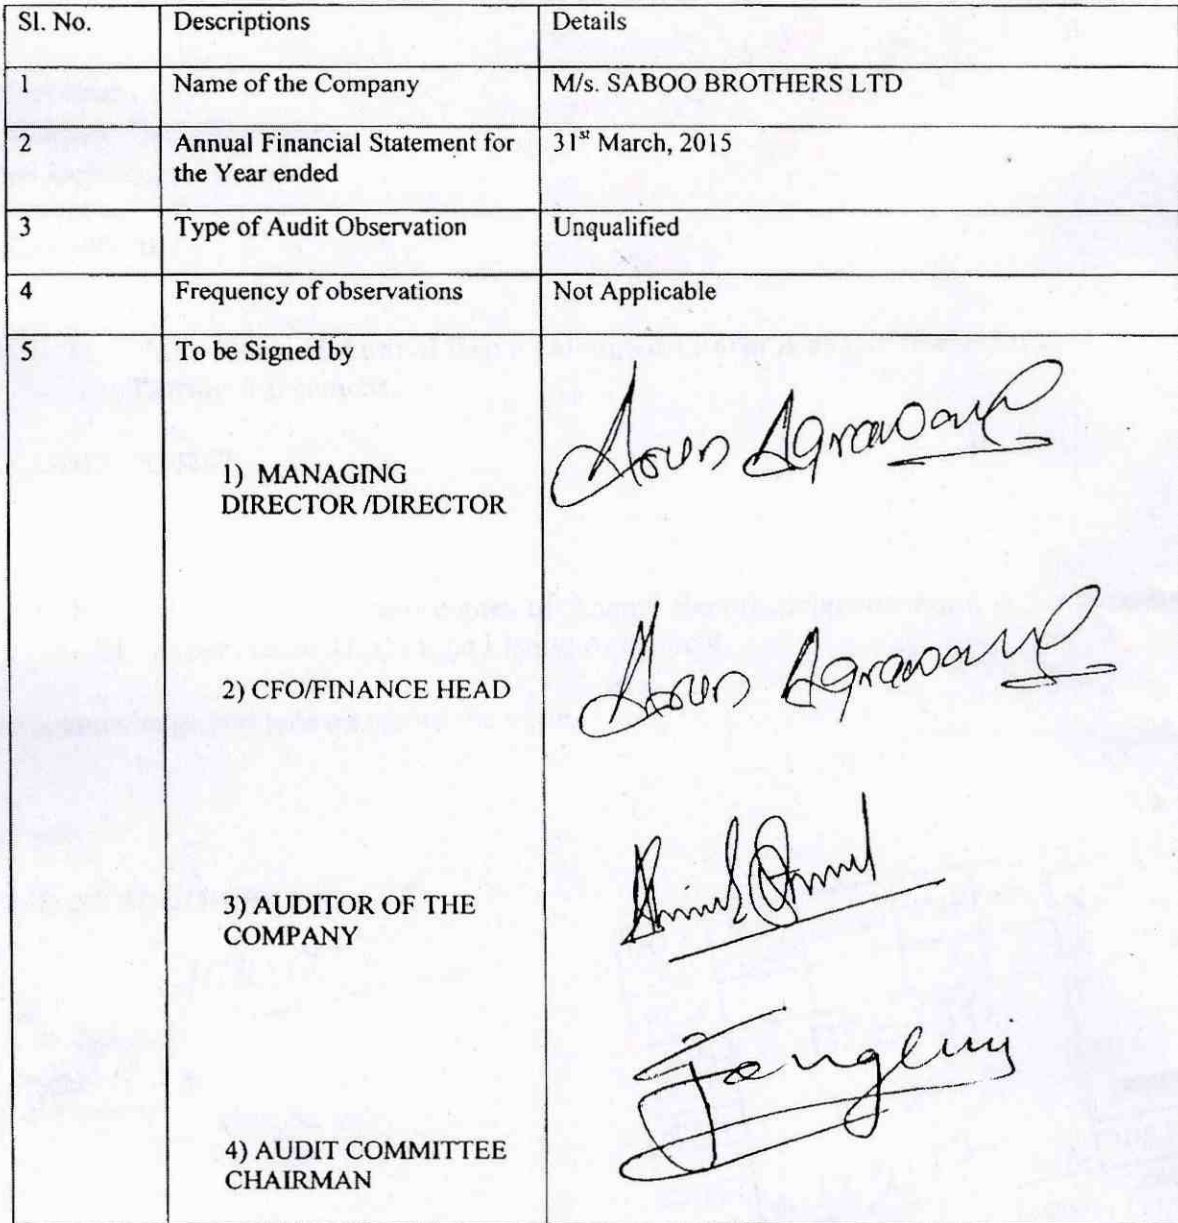 Sl. No. Descriptions Details
1 Name of the Company M/s. SABOO BROTHERS LTD
2 Annual Financial Statement for 31st March, 2015
the Year ended
3 Type of Audit Observation Unqualified
4 Frequency of observations Not Applicable
5 To be Signed by
Arun Agrawal
1) MANAGING
DIRECTOR /DIRECTOR
Arun Agrawal
2) CFO/FINANCE HEAD
3) AUDITOR OF THE
COMPANY
4) AUDIT COMMITTEE
CHAIRMAN